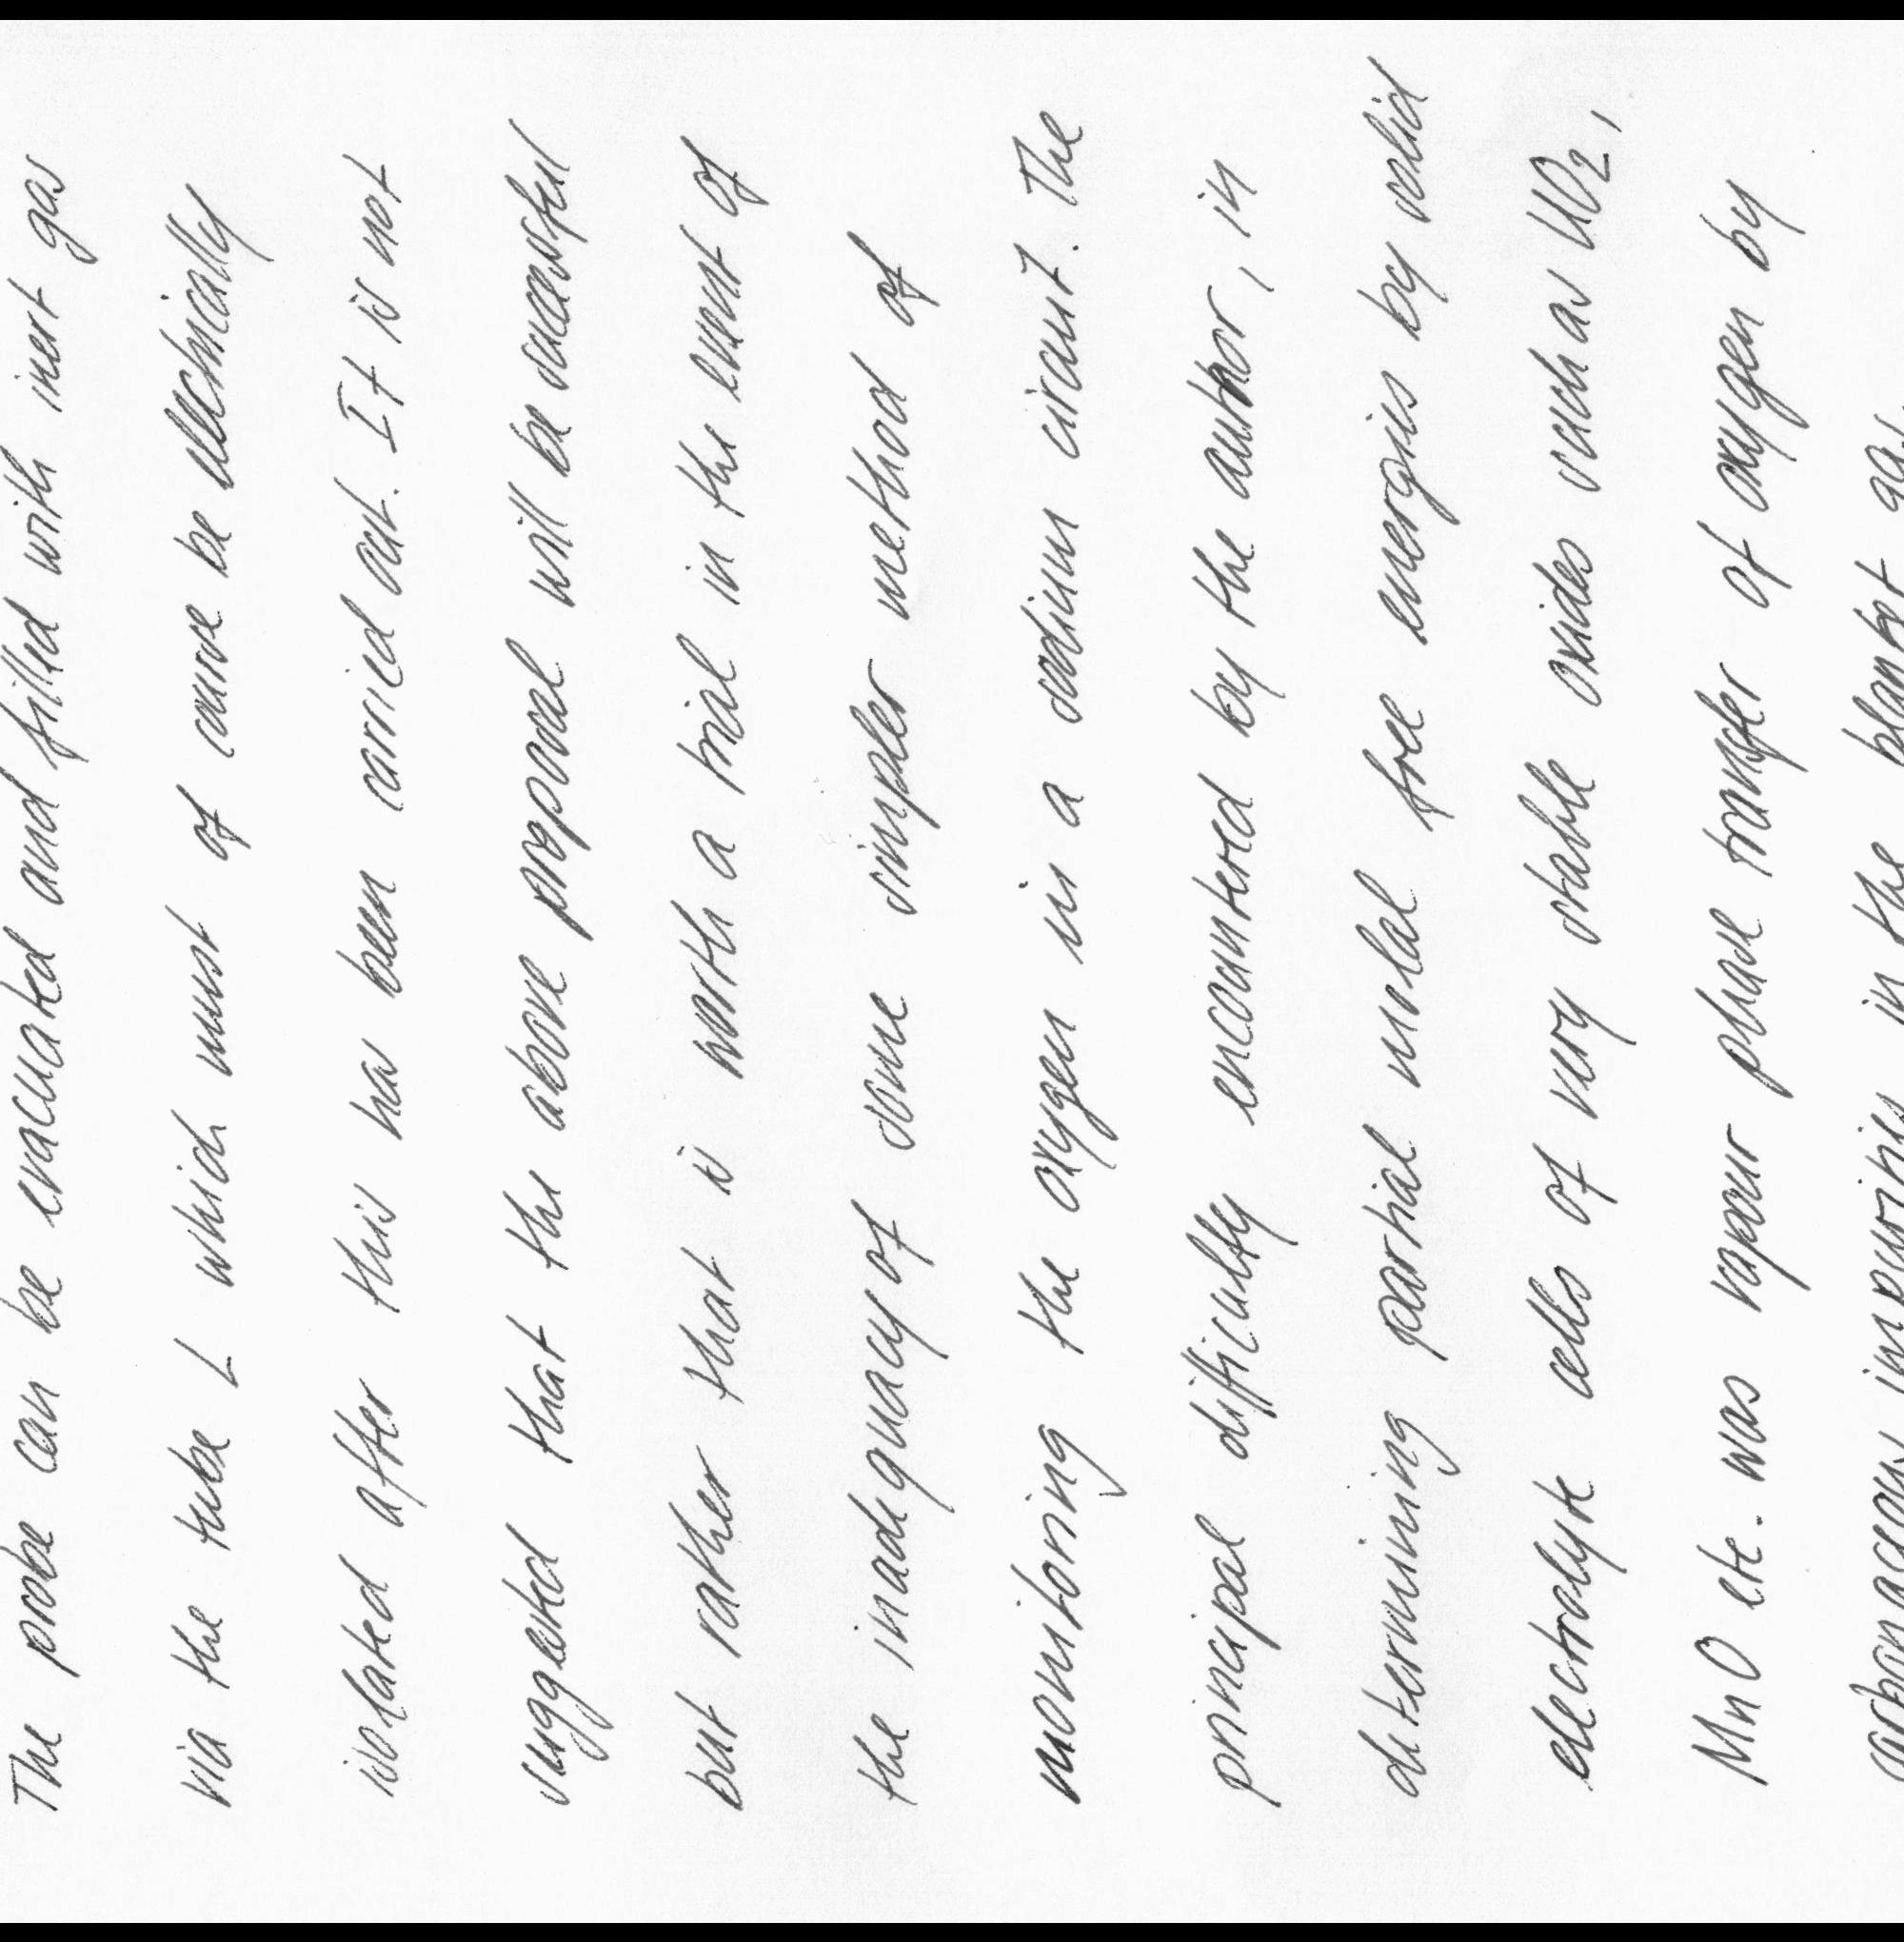 The probe can be evacuated and filled with inert gas
via the tube L which must of course be electrically
isolated after this has been carried out. It is not
suggested that the above proposal will be successful
but rather that is worth a trial in the event of
the inadequacy of some simpler method of
monitoring the oxygen in a sodium circuit. The
principal difficulty encountered by the author, in
determining partial molal free energies by solid
electrolyte cells of very stable oxides such as UO₂,
MnO etc. was vapour phase transfer of oxygen by
carbonaceous impurities in the blanket gas